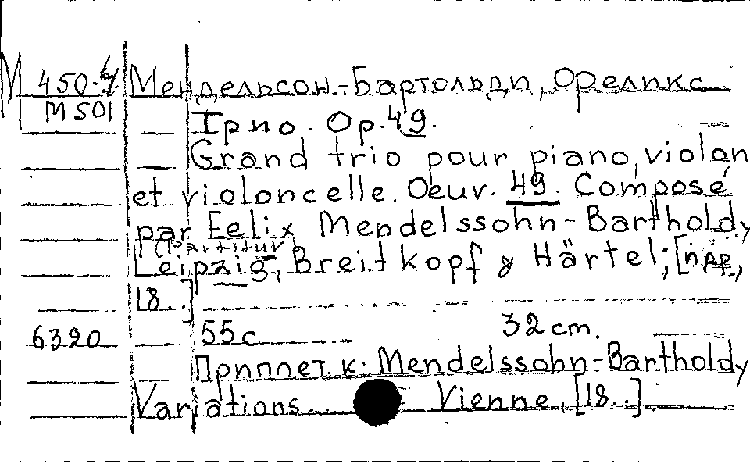 М 450.4 Мендельсон-Бартольди, Феликс
М 501
Трио. Op. 49.
Grand trio pour piano, violon
et violoncelle. Oeuv. 49. Composé
par Felix Mendelssohn-Bartholdy
(Partitur)
Leipzig, Breitkopf & Härtel; [пдр,
18..]
6320 55с 32 cm.
Приплет к: Mendelssohn-Bartholdy
Variations. Vienne, [18..]